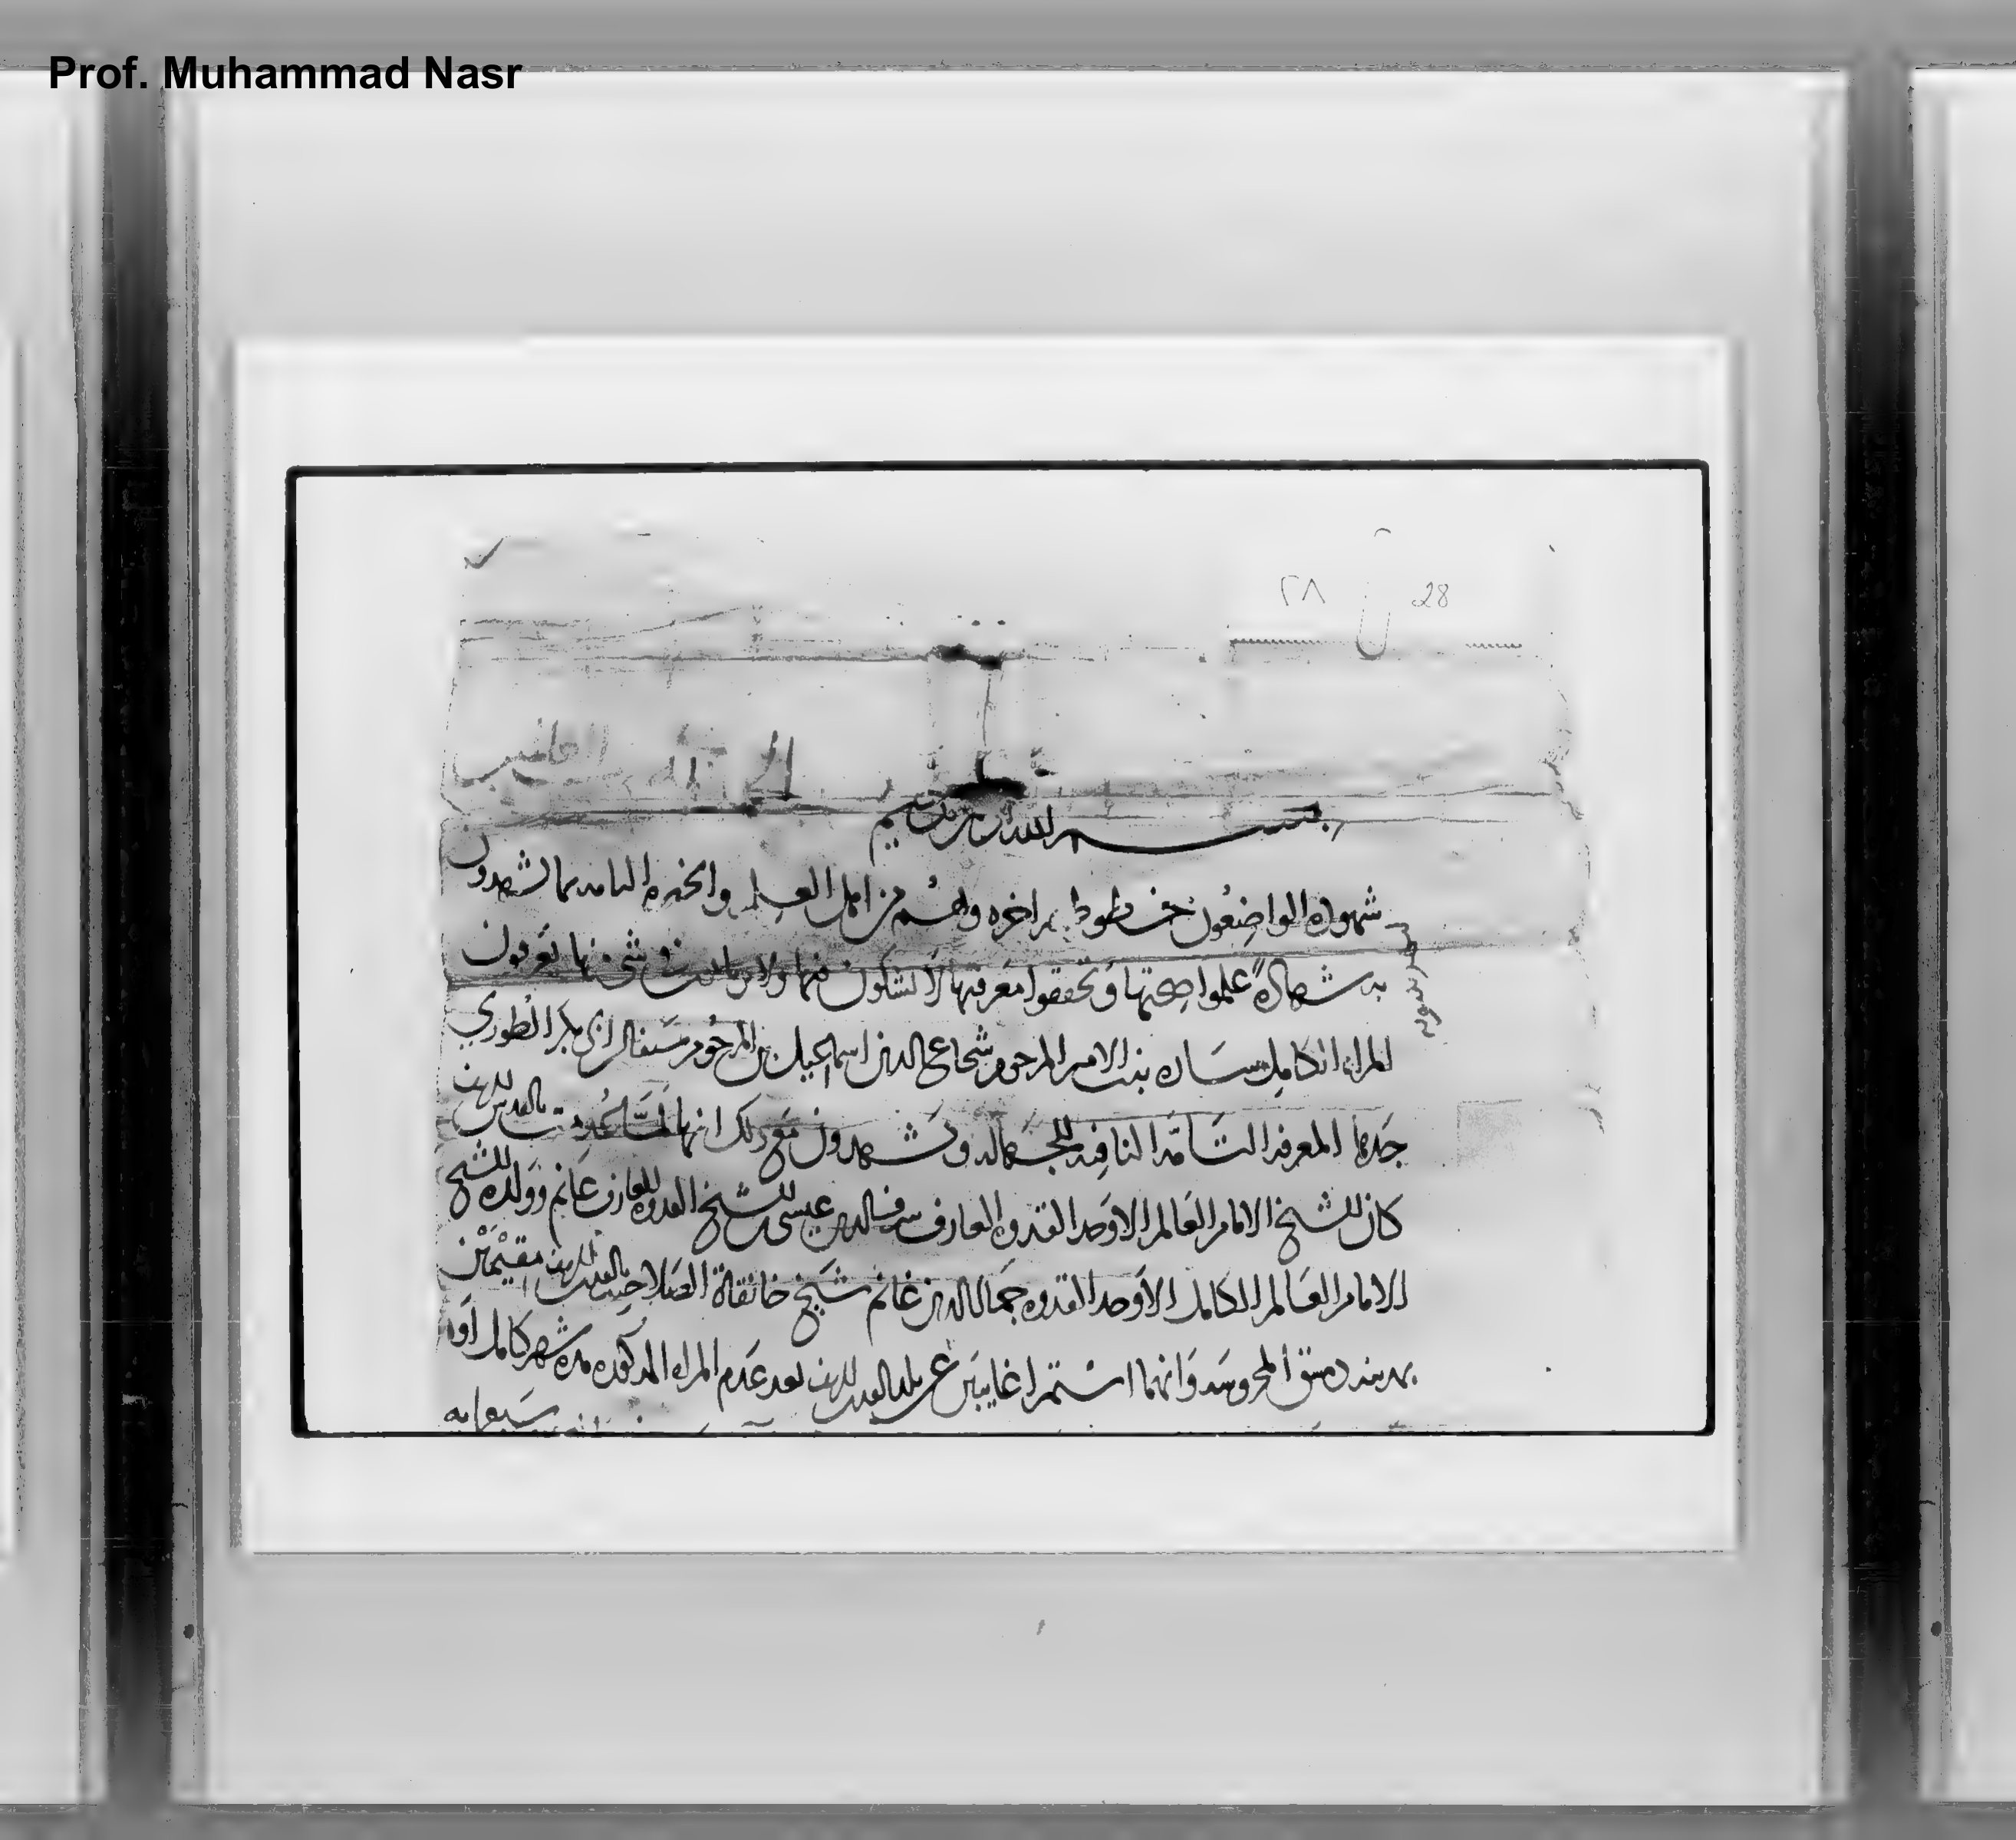 Prof. Muhammad Nasr
٢٨ 28
الحمد لله
بسم الله الرحمن الرحيم
شهوده الواضعون خطوطهم اخره وهم من اهل العلم والخبره التامه بما يشهدون
به شهادة علموا صحتها وتحققوا معرفتها لا يشكون فيها ولا يرتابون في شي منها يعرفون
المراه الكامل ساره بنت الامير المرحوم شجاع الدين اسماعيل بن المرحوم سنقر ابي بكر الطوري
جدها المعرفه التامه النافيه للجهاله ويشهدون مع ذلك انها لما عدمت بالقدس الشريف
كان الشيخ الامام العالم الاوحد القدوه العارف شرف الدين عيسى بن الشيخ القدوه العارف غانم وولده الشيخ
الامام العالم الكامل الاوحد القدوه جمال الدين غانم شيخ خانقاة الصلاحيه بالقدس الشريف مقيمين
بمدينه دمشق المحروسه وانهما استمرا غايبين عن بلد القدس الشريف بعد عدم المراه المذكوره مده شهر كامل اول
سبعمايه